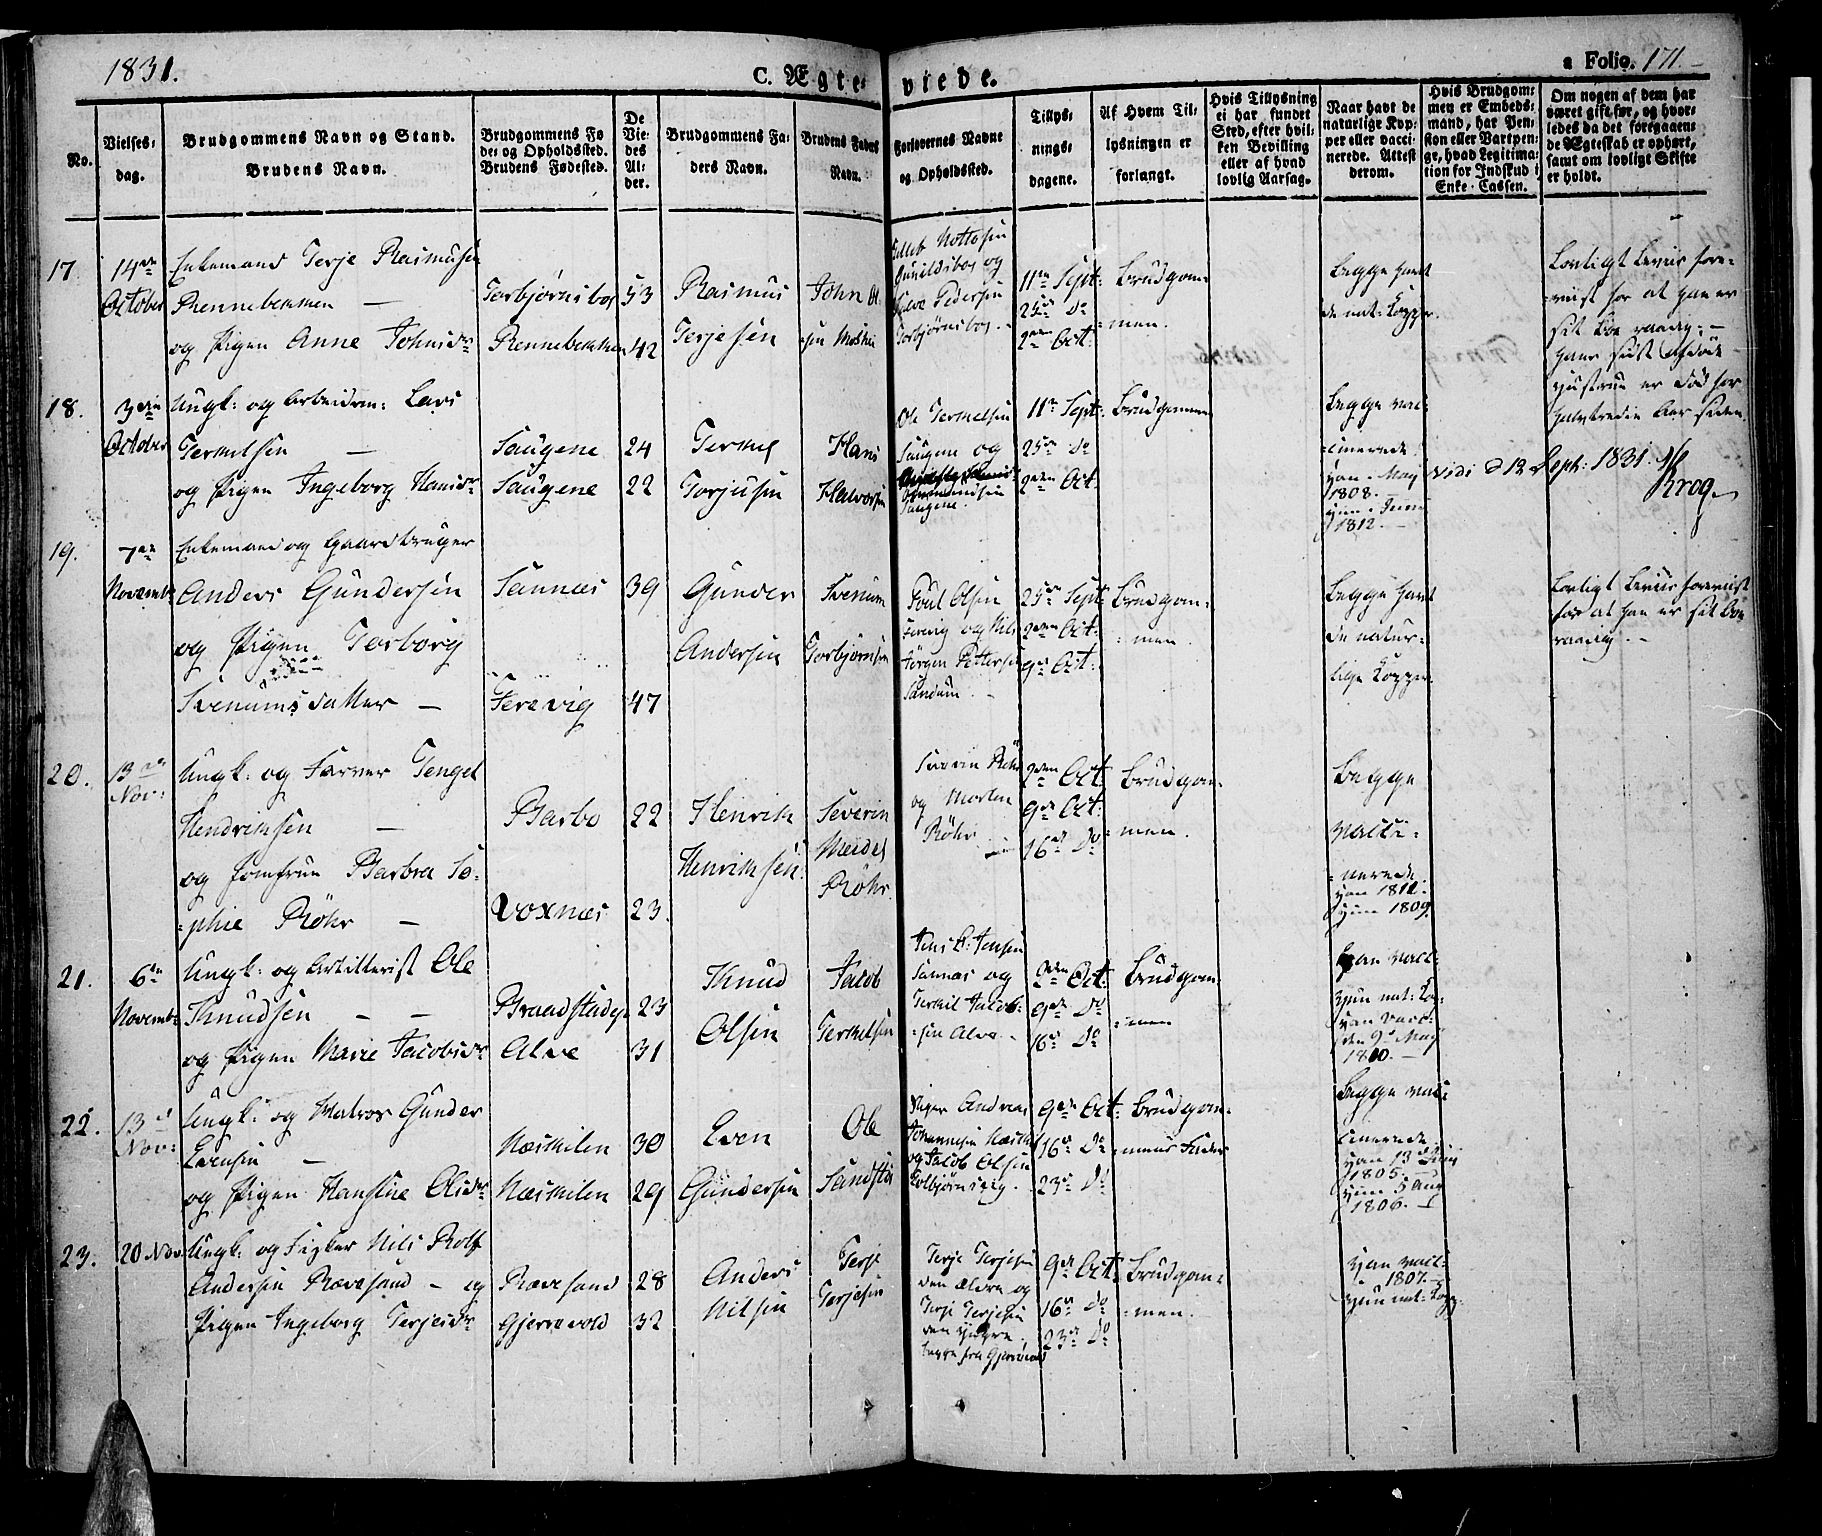 1831.
C. Ægteviede.
a Folio. 171.
No.
Vielsesdag.
Brudgommens Navn og Stand.
Brudens Navn.
Brudgommens Føde- og Opholdssted.
Brudens Fødested.
De Viedes Alder.
Brudgommens Faders Navn.
Brudens Faders Navn.
Forlovernes Navne og Opholdssted.
Tillysningsdagene.
Af Hvem Tillysningen er forlangt.
Hvis Tillysning ei har fundet Sted, efter hvilken Bevilling eller af hvad lovlig Aarsag.
Naar havt de naturlige Kopper eller vaccinerede. Attest derom.
Hvis Brudgommen er Embedsmand, har Pension eller Vartpenge, hvad Legitimation for Indskud i Enke-Cassen.
Om nogen af dem har været gift før, og hvorledes da det foregaaende Ægteskab er ophørt, samt om lovligt Skifte er holdt.
17. 14de October
Enkemand Terje Rasmusen
Rennebekken —
og Pigen Anne Johnsdr
Torbjørnsboe 53
Rennebekken 42
Rasmus Terjesen
John
Nottosen
og
Pedersen
Torbjørnsbo.
11te Sept:
25de Do
2den Oct:
Brudgom=
=men.
Begge havt
de nat: Kopper.
Lovligt Beviis fore=
=viist for at han er
=
hans sidst afdøde
Hustrue er død for
halvtredie Aar siden
18. 3die October
Ungk: og Arbeidsm: Lars
Terkelsen —
og Pigen Ingeborg Hansdr
Saugene 24
Saugene 22
Terkel Torjusen
Hans Halvorsen
Ole Terkelsen
Saugene og
Saugene.
11te Sept:
25de Do
2den Oct:
Brudgommen
Begge vac=
=cinerede
han - May
1808. —
hun - Juni
1812. —
Vidi d 12 Sept: 1831.
Krog.
19. 7de Novembr
Enkemand og Gaardbruger
Anders Gundersen
og Pigen Torborg
Svenumsdatter —
Sannæs 39
Ferevig 47
Gunder Andersen
Svenum Torbjørnsen
Poul Olsen
Ferevig og Nils
Jørgen Pettersen
Sandum.
25de Sept:
2den Oct:
9de Oct:
Brudgom=
=men.
Begge havt
de natur=
lige Kopper.
Lovligt Beviis foreviist
for at han er
=raadig. —
20. 13de Nov:
Ungk: og Farver Tengel
Hendriksen —
og Jomfrue Barbra So=
=phie Röhr —
Barbo 22
Voxnæs 23.
Henrik Henriksen.
Severin Meidel Röhr.
Severin Röhr
og Morten
Röhr
2den Oct:
9de Oct:
16de Do
Brudgom=
=men.
Begge
vacci=
=nerede.
han 1812.
hun 1809.
21. 6te Novembr
Ungk: og Artillerist Ole
Knudsen — —
og Pigen Marie Jacobsdr
Braadstad 23
Alve 31
Knud Olsen
Jacob Terkelsen
Jens B: Jensen
Sannæs og
Terkil Jacob=
=sen Alve.
2den Oct:
9de Do
16de Do
Brudgom=
=men
han vacc:
hun nat: Kop:
han vacc:
den 9de May
1810. —
22. 13de Nov:
Ungk: og Matros Gunder
Evensen —
og Pigen Hanstine Olsdr
Næskilen 30
Næskilen 29
Even Gundersen
Ole
Andreas
Johannesen Næskil
og Jacob Olsen
9de Oct:
16de Do
23de Do
Brudgom=
=mens Fader
Begge vac=
cinerede
han 13 Juni
1805. —
hun 5 Aug
1806. —
23. 20 Nov
Ungk: og Fisker Nils Rolf
Andersen Rævesand — og
Pigen Ingeborg Terjesdr
Rævesand 28
Gjervevold 32
Anders Nilsen
Terje Terjesen
Terje Terjesen
den Ældre og
Terje Terjesen
den yngre.
begge fra
9de Oct:
16de Do
23de Do
Brudgom=
=men.
han vacc:
1807. —
hun nat: Kopp: